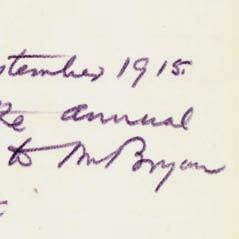 stember 1915.
ke annual
to Mr Bryan